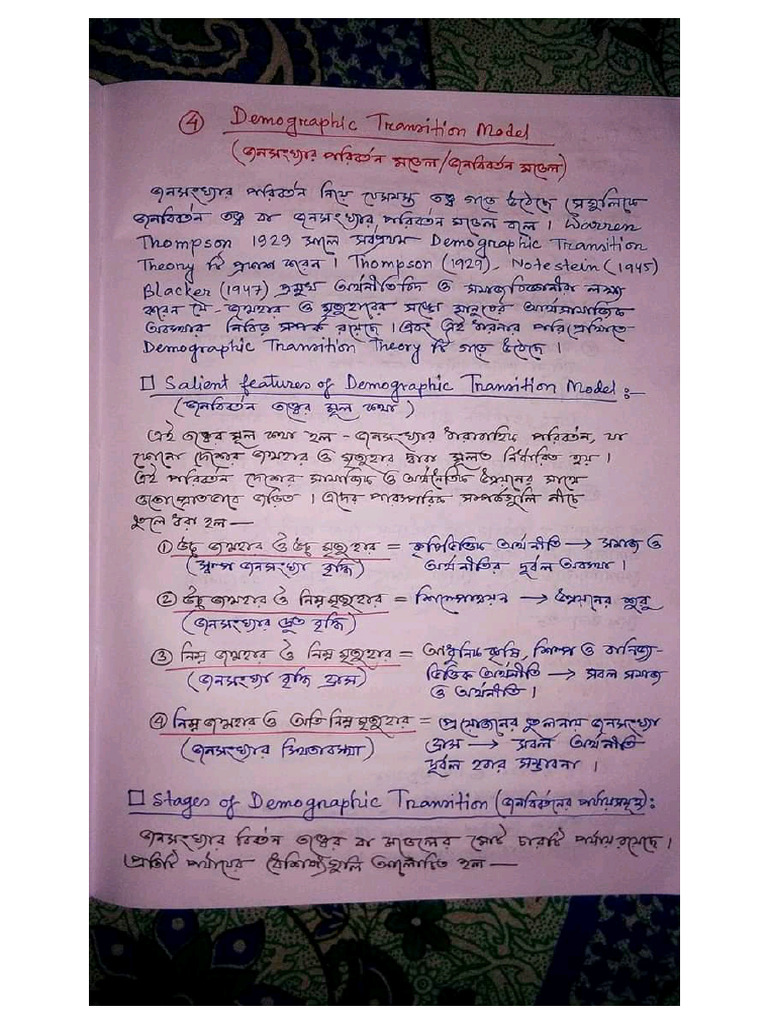 ④ Demographic Transition Model
(জনসংখ্যার পরিবর্তন মডেল/জনবিবর্তন মডেল)
জনসংখ্যার পরিবর্তন নিয়ে যেসমস্ত তত্ত্ব গড়ে উঠেছে সেগুলিকে
জনবিবর্তন তত্ত্ব বা জনসংখ্যার পরিবর্তন মডেল বলে । Warren
Thompson 1929 সালে সর্বপ্রথম Demographic Transition
Theory টি প্রকাশ করেন । Thompson (1929), Notestein (1945)
Blacker (1947) প্রমুখ অর্থনীতিবিদ ও সমাজবিজ্ঞানীরা লক্ষ্য
করেন যে - জন্মহার ও মৃত্যুহারের সঙ্গে মানুষের আর্থসামাজিক
অবস্থার নিবিড় সম্পর্ক রয়েছে । এবং এই ধারনার পরিপ্রেক্ষিতে
Demographic Transition Theory টি গড়ে উঠেছে ।
□ Salient features of Demographic Transition Model :-
(জনবিবর্তন তত্ত্বের মূল কথা)
এই তত্ত্বের মূল কথা হল - জনসংখ্যার ধারাবাহিক পরিবর্তন, যা
কোনো দেশের জন্মহার ও মৃত্যুহার দ্বারা মূলত নির্ধারিত হয় ।
এই পরিবর্তন দেশের সামাজিক ও অর্থনৈতিক উন্নয়নের সাথে
ওতোপ্রোতভাবে জড়িত । এদের পারস্পরিক সম্পর্কগুলি নীচে
তুলে ধরা হল —
① উচ্চ জন্মহার ও উচ্চ মৃত্যুহার = কৃষিভিত্তিক অর্থনীতি → সমাজ ও
(স্বল্প জনসংখ্যা বৃদ্ধি) অর্থনীতির দুর্বল অবস্থা ।
② উচ্চ জন্মহার ও নিম্ন মৃত্যুহার = শিল্পোন্নয়ন → উন্নয়নের শুরু
(জনসংখ্যার দ্রুত বৃদ্ধি)
③ নিম্ন জন্মহার ও নিম্ন মৃত্যুহার = আধুনিক কৃষি, শিল্প ও বানিজ্য-
(জনসংখ্যা বৃদ্ধি হ্রাস) ভিত্তিক অর্থনীতি → সবল সমাজ
ও অর্থনীতি ।
④ নিম্ন জন্মহার ও অতি নিম্ন মৃত্যুহার = প্রয়োজনের তুলনায় জনসংখ্যা
(জনসংখ্যার স্থিতাবস্থা) হ্রাস → সবল অর্থনীতি
দুর্বল হবার সম্ভাবনা ।
□ Stages of Demographic Transition (জনবিবর্তনের পর্যায়সমূহ) :
জনসংখ্যার বিবর্তন তত্ত্বের বা মডেলের মোট চারটি পর্যায় রয়েছে ।
প্রতিটি পর্যায়ের বৈশিষ্ট্যগুলি আলোচিত হল —